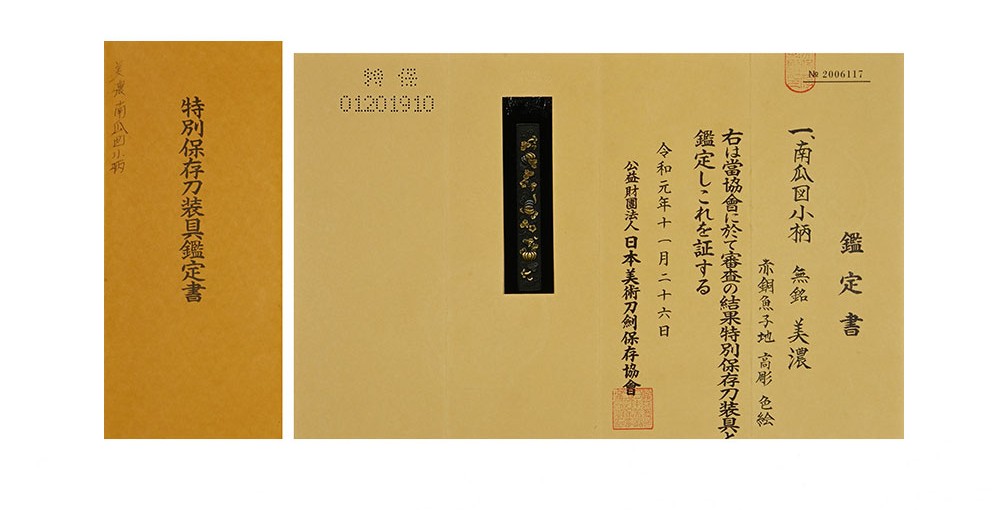 美濃南瓜図小柄
特別保存刀装具鑑定書
特保
01201910
№ 2006117
鑑定書
一、南瓜図小柄 無銘 美濃
赤銅魚子地 高彫 色絵
右は當協會に於て審査の結果特別保存刀装具と
鑑定しこれを証する
令和元年十一月二十六日
公益財團法人 日本美術刀劍保存協會